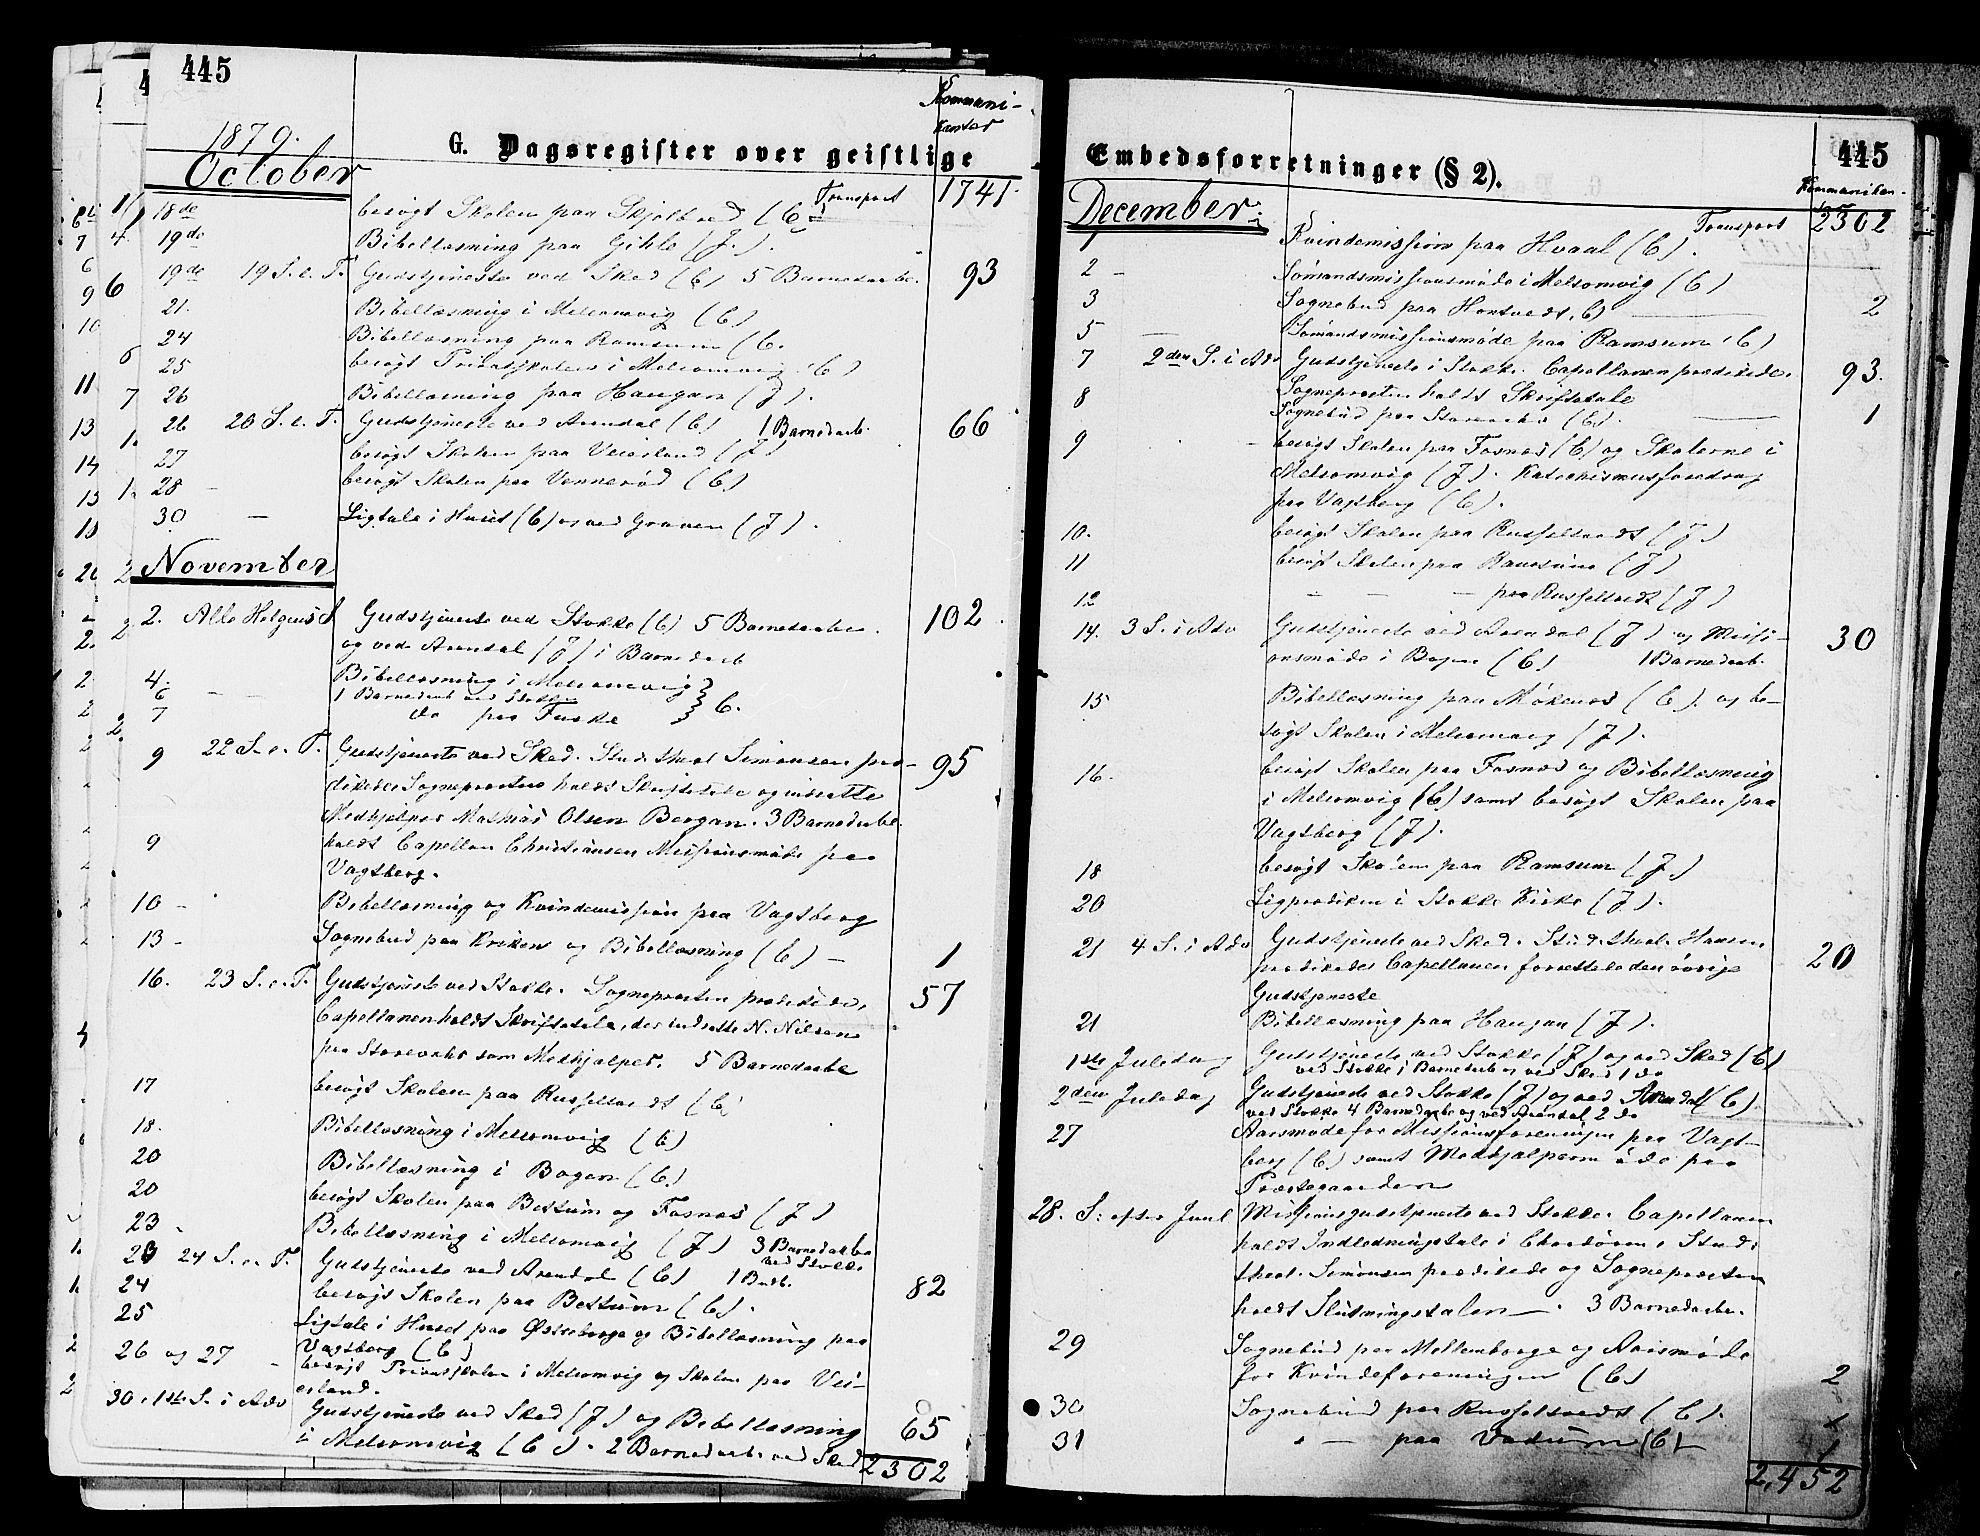 445
Kommuni-
kanter
1879.
G. Dagsregister over geistlige
October
Transport 1741.
18de besøgt Skolen paa Skjelbred (C)
19de Bibellæsning paa Gihle (J.).
19de 19 S. e. T. Gudstjeneste ved Skee (C) 5 Barnedaabe. 93
21. Bibellæsning i Melsomvig (C)
24 Bibellæsning paa Ramsum (C.
25 besøgt Privatskolen i Melsomvig (C)
26 Bibellæsning paa Haugan (J).
26 20 S. e. T. Gudstjeneste ved Arendal (C) 1 Barnedaab. 66
27 besøgt Skolen paa Veierland (J)
28 — besøgt Skolen paa Vennerød (C)
30 — Ligtale i Huset (C) og ved Graven (J).
November
2. Alle Helgens S. Gudstjeneste ved Stokke (C) 5 Barnedaabe. 102.
og ved Arendal (J) 1 Barnedaab
4. Bibellæsning i Melsomvig
6 — — 1 Barnedaab ved Stokke } C.
7 do paa Fuske
9 22 S. e. T. Gudstjeneste ved Skee. Stud. theol Simonsen præ- 95
dikede. Sognepresten holdt Skriftetale og indsatte
Medhjelper Mathias Olsen Bergan. 3 Barnedaabe.
9 holdt Capellan Christiansen Missionsmøde paa
Vagtsberg.
10 - Bibellæsning og Kvindemission paa Vagtsberg
13 - Sognebud paa Kriken og Bibellæsning (C) — 1
16. 23 S. e. T. Gudstjeneste ved Stokke. Sognepresten prædikede, 57
Capellanen holdt Skriftetale, der indsatte N. Nilsen
paa Storevahr som Medhjelper. 5 Barnedaabe
17 besøgt Skolen paa Russeltvedt (C)
18. Bibellæsning i Melsomvig (C)
20 Bibellæsning i Bogen (C.)
20 besøgt Skolen paa Bettum og Fosnæs (J)
23 - Bibellæsning i Melsomvig (J) 3 Barnedaabe
ved Stokke
23 24 S. e. T. Gudstjeneste ved Arendal (C) 1 Bdb. 82
24 besøgt Skolen paa Bettum (C).
25 Ligtale i Huset paa Østreborge og Bibellæsning paa
Vagtsberg (C)
26 og 27 - besøgt Privatskolen i Melsomvig og Skolen paa Vei-
erland.
30. 1ste S. i Adv Gudstjeneste ved Skee (J) og Bibellæsning 65
i Melsomvig (C). 2 Barnedaab ved Skee
2302
Embedsforretninger (§ 2). 445
Kommunikan-
December. Transport 2302
1 Kvindemission paa Hvaal (C).
2 - Sømandsmissionsmøde i Melsomvig (C)
3 Sognebud paa Hontvedt (C) — 2
5 — Sømandsmissionsmøde paa Ramsum (C)
7 2den S. i Adv Gudstjeneste i Stokke. Capellanen prædikede. 93.
Sognepresten holdt Skriftetale
8 Sognebud paa Storevahr (C). — 1
9 - besøgt Skolen paa Fosnæs (C) og Skolerne i
Melsomvig (J). Katechismusforedrag
paa Vagtsberg (C).
10. besøgt Skolen paa Russeltvedt (J.)
11 besøgt Skolen paa Ramsum (J)
12 — — — paa Russeltvedt (J)
14. 3 S. i Adv Gudstjeneste ved Arendal (J) og Missi- 30
onsmøde i Bogen (C) 1 Barnedaab.
15 Bibellæsning paa Møkenes (C). og be-
søgt Skolen i Melsomvig (J).
16. besøgt Skolen paa Fosnæs og Bibellæsning
i Melsomvig (C) samt besøgt Skolen paa
Vagtsberg (J).
18 besøgt Skolen paa Ramsum (J.)
20 Ligprædiken i Stokke Kirke (J).
21 4 S. i Adv Gudstjeneste ved Skee. Stud. theol. Hansen 20
prædikede Capellanen forrettede den øvrige
Gudstjeneste
21 Bibellæsning paa Haugan (J).
1ste Juledag Gudstjeneste ved Stokke (J) og ved Skee (C)
ved Stokke 1 Barnedaab og ved Skee 1 do
2den Juledag Gudstjeneste ved Stokke (J) og ved Arendal (C).
ved Stokke 4 Barnedaabe og ved Arendal 2 do
27 Aarsmøde for Missionsforeningen paa Vagts-
berg (C) samt Medhjelperm do paa
Præstegaarden
28. S. efter Juul Missionsgudstjeneste ved Stokke. Capellanen
holdt Indledningstale i Chordøren, Stud.
theol. Simonsen prædikede og Sognepresten
holdt Slutningstalen —. 3 Barnedaabe.
29 Sognebud paa Mellemborge og Aarsmøde
for Kvindeforeningen (C) 2
30 Sognebud paa Russeltvedt (C). 1
31 " — paa Vadum (C) — 1
2,452